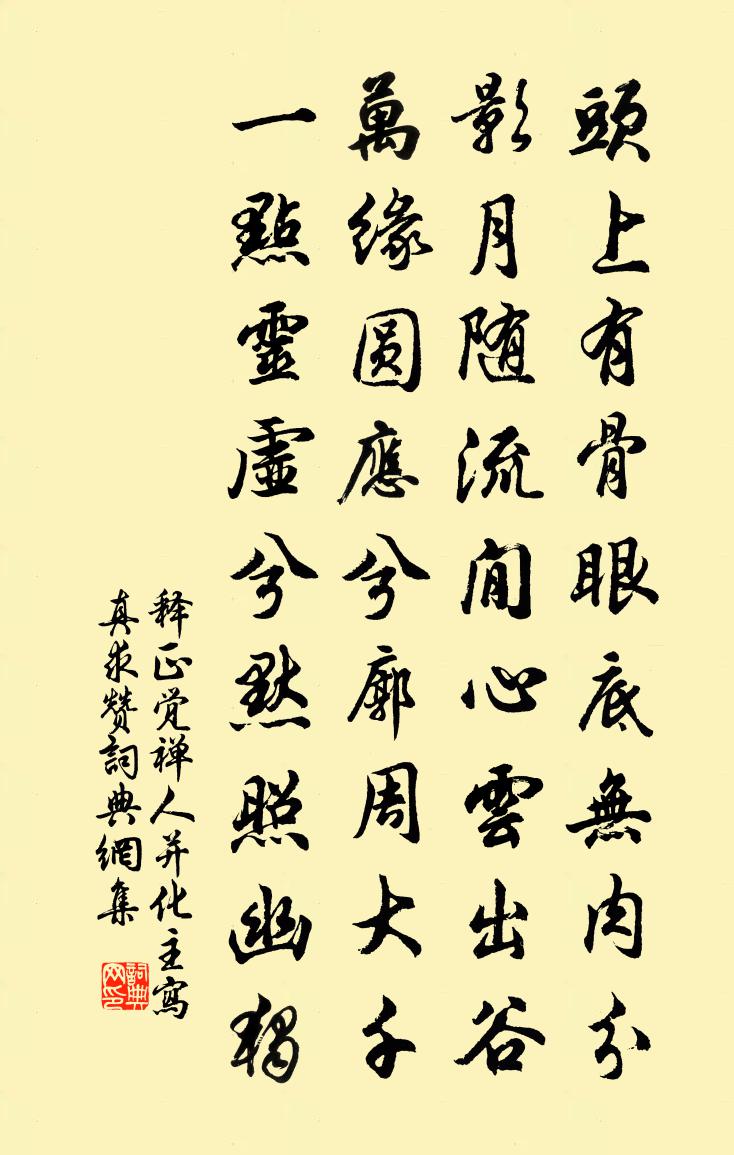 頭上有骨眼底無肉分
影月随流閒心雲出谷
萬緣圆應兮廓周大千
一點靈虛兮默照幽獨
释正觉禅人并化主寫
真求赞詞典網集
詞典网印